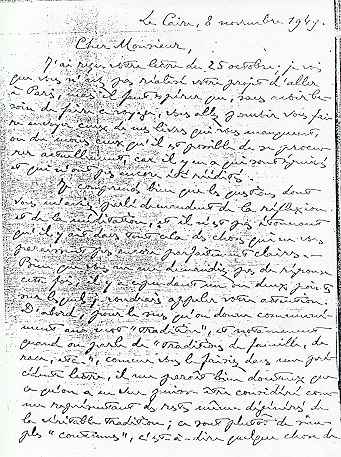 Le Caire, 8 novembre 1949.
Cher Monsieur,
J'ai reçu votre lettre du 25 octobre; je vois
que vous n'avez pas réalisé votre projet d'aller
à Paris, mais il faut espérer que, sans avoir be-
soin de faire ce voyage, vous allez pouvoir vous fai-
re envoyer ceux de mes livres qui vous manquent,
ou du moins ceux qu'il est possible de se procu-
rer actuellement, car il y en a qui sont épuisés
et qui n'ont pas encore été réédités.
Je comprends bien que les questions dont
vous m'aviez parlé demandent de la réflexion
et de la méditation, et il n'est pas étonnant
qu'il y ait dans tout cela des choses qui ne vous
paraissent pas encore parfaitement claires.
Bien que vous ne me demandiez pas de réponse
cette fois, il y a cependant un ou deux points
sur lesquels je voudrais appeler votre attention.
D'abord, pour le sens qu'on donne communé-
ment au mot "tradition", et notamment
quand on parle de "traditions de famille, de
race, etc.", comme vous le faisiez dans une pré-
cédente lettre, il me paraît bien douteux que
ce qu'on a en vue puisse être considéré comme
représentant des restes même dégénérés de
la véritable tradition; ce sont plutôt de sim-
ples "coutumes", c'est-à-dire quelque chose de